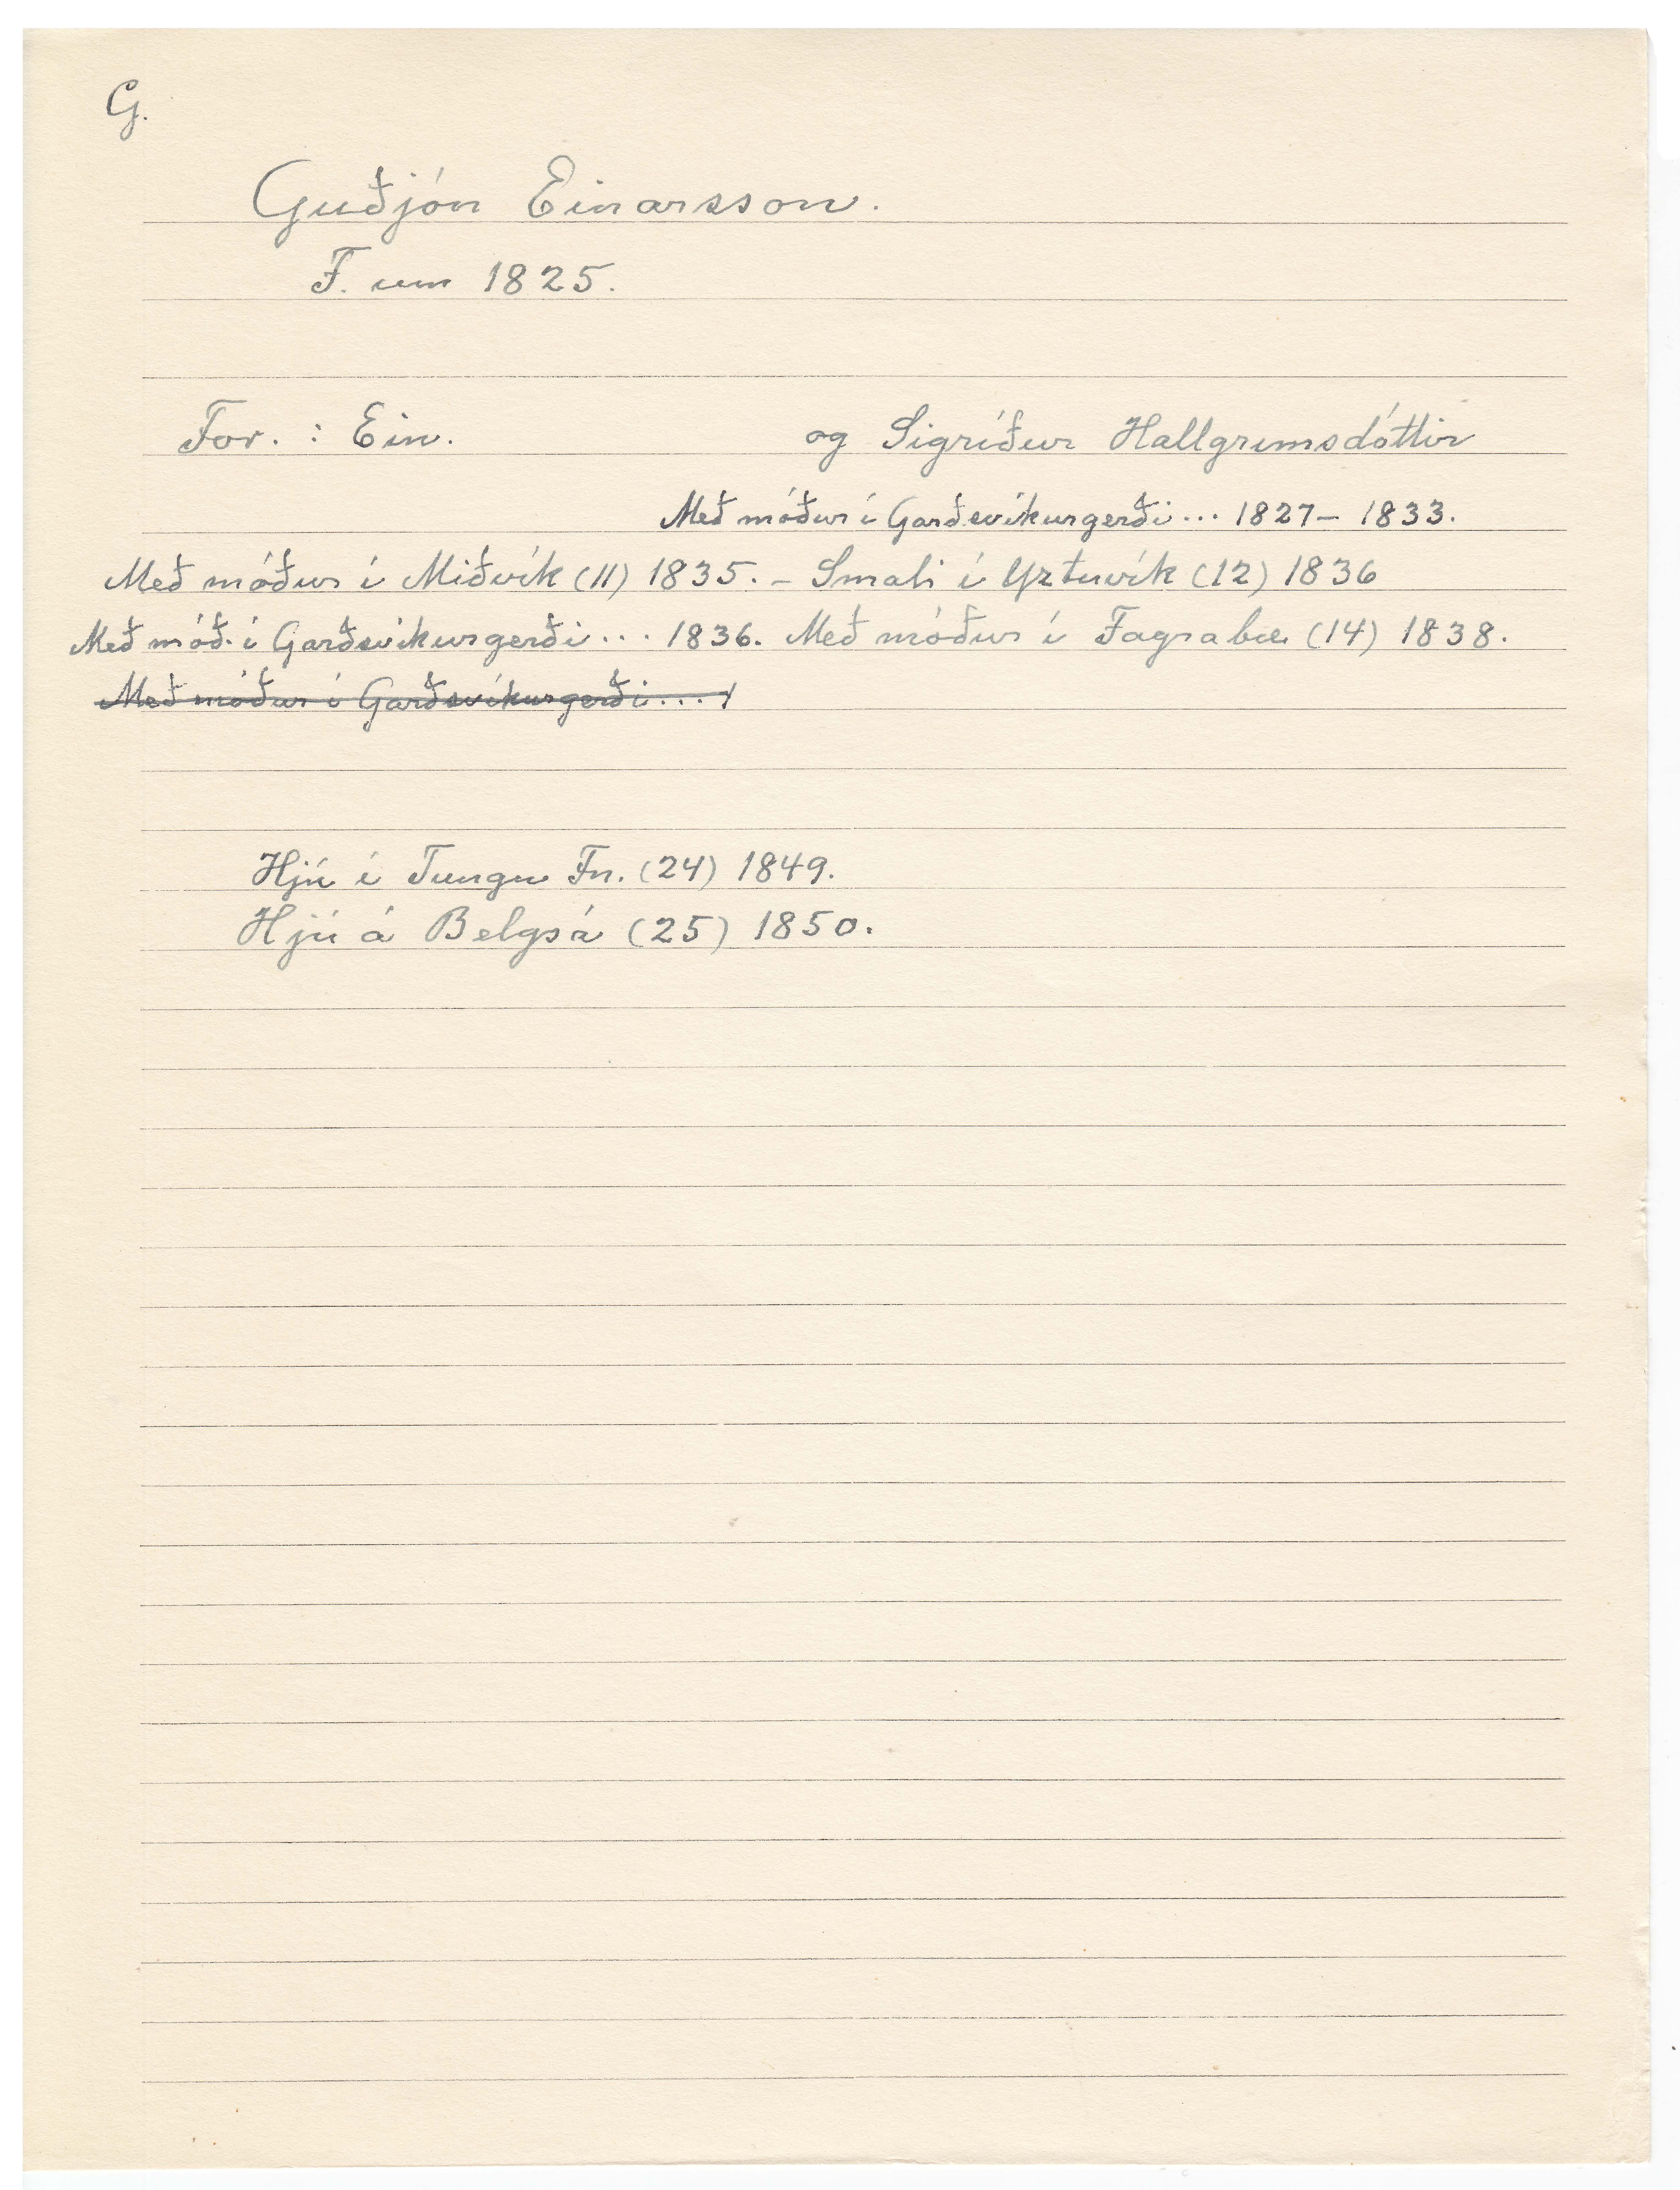 G.
Guðjón Einarsson.
F. um 1825.
For. : Ein. og Sigríður Hallgrímsdóttir
Með móður í Garðsvíkurgerði... 1827– 1833.
Með móður í Miðvík (11) 1835. – Smali í Yztuvík (12) 1836
Með móð. í Garðsvíkurgerði... 1836. Með móður í Fagrabæ (14) 1838.
Með móður í Garðsvíkurgerði....
Hjú í Tungu Fn. (24) 1849.
Hjú á Belgsá (25) 1850.